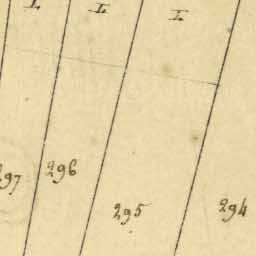 I I I
297 296
295 294